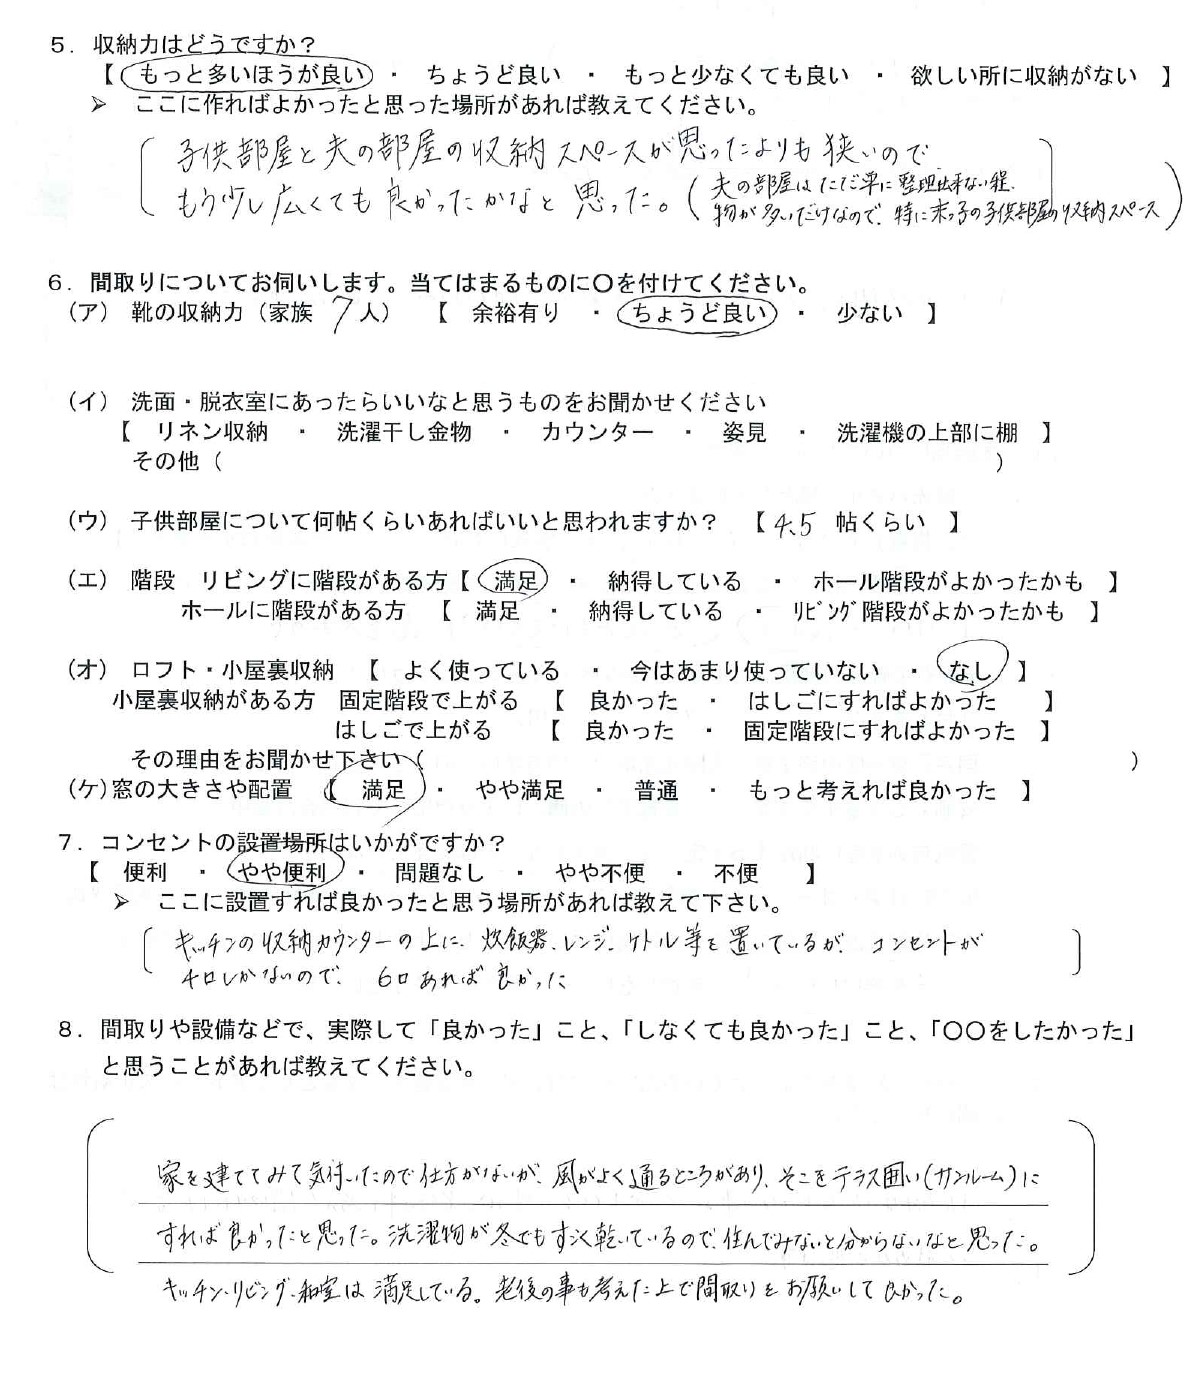 ５．収納力はどうですか？
【 もっと多いほうが良い ・ ちょうど良い ・ もっと少なくても良い ・ 欲しい所に収納がない 】
➢ ここに作ればよかったと思った場所があれば教えてください。
子供部屋と夫の部屋の収納スペースが思ったよりも狭いので、
もう少し広くても良かったかなと思った。(夫の部屋はただ単に整理出来ない程、
物が多いだけなので、特に末っ子の子供部屋の収納スペース)
６．間取りについてお伺いします。当てはまるものに〇を付けてください。
（ア） 靴の収納力（家族 7 人） 【 余裕有り ・ ちょうど良い ・ 少ない 】
（イ） 洗面・脱衣室にあったらいいなと思うものをお聞かせください
【 リネン収納 ・ 洗濯干し金物 ・ カウンター ・ 姿見 ・ 洗濯機の上部に棚 】
その他（ ）
（ウ） 子供部屋について何帖くらいあればいいと思われますか？ 【 4.5 帖くらい 】
（エ） 階段 リビングに階段がある方【 満足 ・ 納得している ・ ホール階段がよかったかも 】
ホールに階段がある方 【 満足 ・ 納得している ・ ﾘﾋﾞﾝｸﾞ階段がよかったかも 】
（オ） ロフト・小屋裏収納 【 よく使っている ・ 今はあまり使っていない ・ なし 】
小屋裏収納がある方 固定階段で上がる 【 良かった ・ はしごにすればよかった 】
はしごで上がる 【 良かった ・ 固定階段にすればよかった 】
その理由をお聞かせ下さい（ ）
（ケ）窓の大きさや配置 【 満足 ・ やや満足 ・ 普通 ・ もっと考えれば良かった 】
７．コンセントの設置場所はいかがですか？
【 便利 ・ やや便利 ・ 問題なし ・ やや不便 ・ 不便 】
➢ ここに設置すれば良かったと思う場所があれば教えて下さい。
キッチンの収納カウンターの上に、炊飯器、レンジ、ケトル等を置いているが、コンセントが
4口しかないので、6口あれば良かった
８．間取りや設備などで、実際して「良かった」こと、「しなくても良かった」こと、「〇〇をしたかった」
と思うことがあれば教えてください。
家を建ててみて気付いたので仕方がないが、風がよく通るところがあり、そこをテラス囲い(サンルーム)に
すれば良かったと思った。洗濯物が冬でもすごく乾いているので、住んでみないと分からないなと思った。
キッチン・リビング・和室は満足している。老後の事も考えた上で間取りをお願いして良かった。